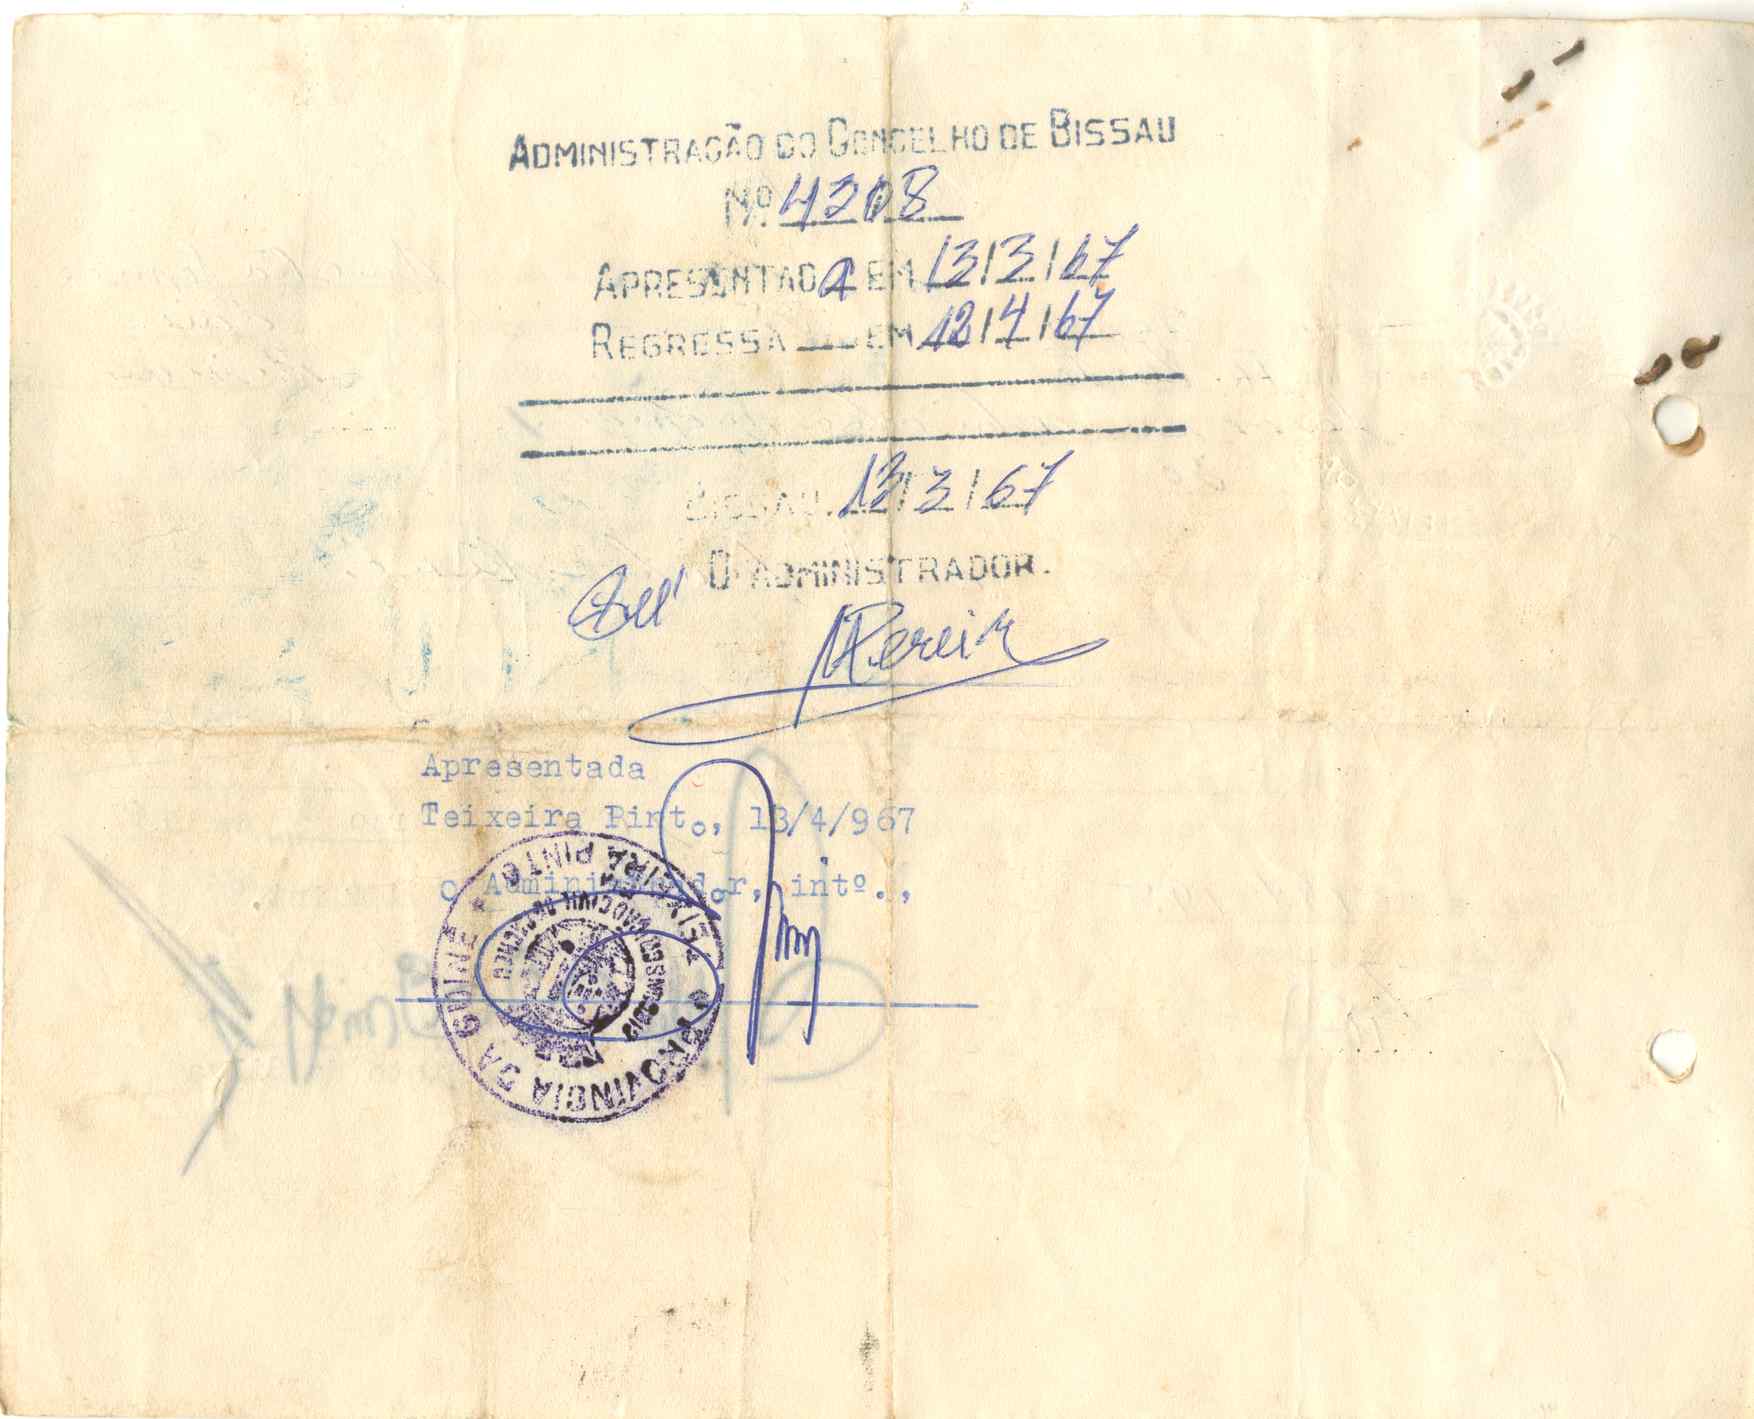 ADMINISTRAÇÃO DO CONCELHO DE BISSAU
Nº. 4208
APRESENTADA EM 13/3/67
REGRESSA EM 12/4/67
BISSAU, 13/3/67
O ADMINISTRADOR.
Pereira
Apresentada
Teixeira Pinto, 13/4/967
O Administrador, intº.,
PROVINCIA DA GUINÉ
TEIXEIRA PINTO